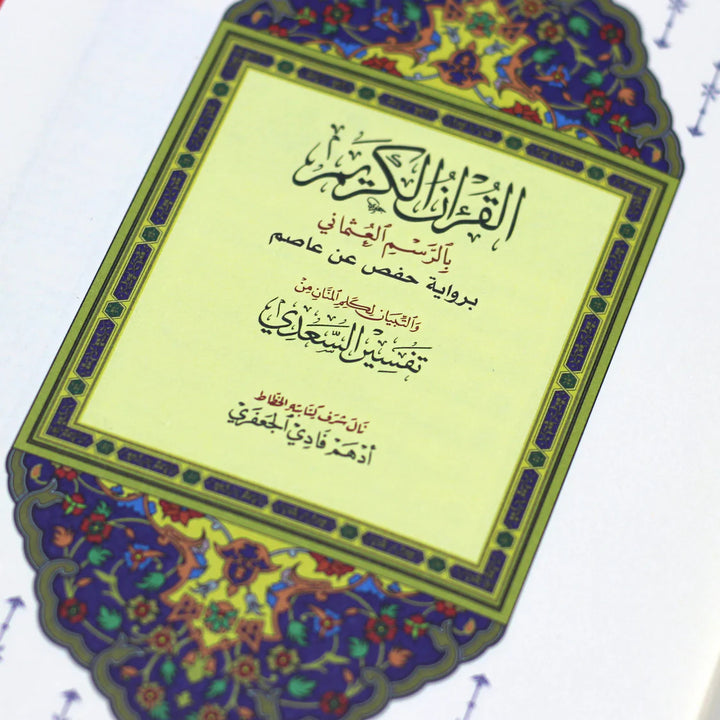 القُرْءَانُ الكَرِيم
بِالرَّسْمِ العُثْمَانِي
برواية حفص عن عاصم
وَالتِّبْيَان لِكَلِمِ المَنَّانِ مِنْ
تَفْسِيرِ السَّعْدِي
نَالَ شَرَفَ كِتَابَتِهِ الخَطَّاط
أَدْهَمْ فَادِي الجَعْفَرِي